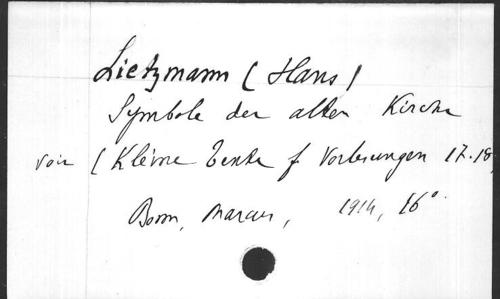 Lietzmann (Hans)
Symbole der alten Kirche
voir (Kleine Texte f Vorlesungen 17.18,
Bonn, Marcus, 1914, 16°.